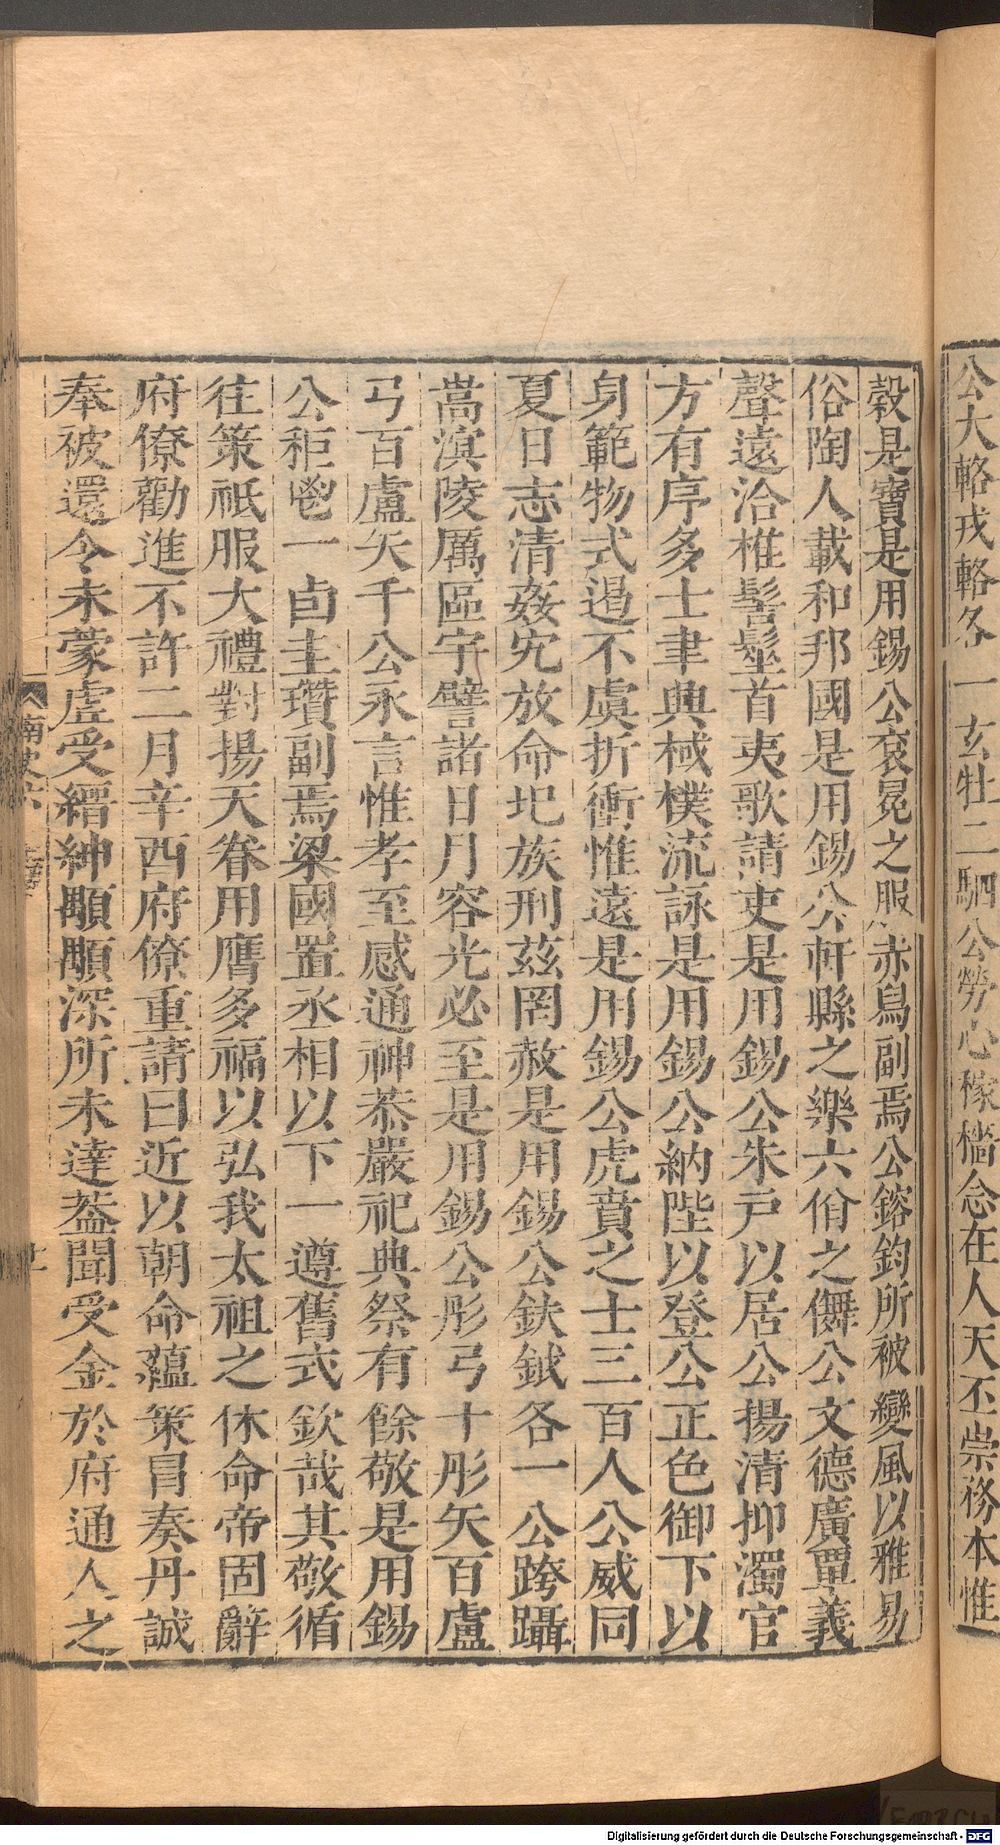 公大輅戎輅各一玄牡二駟公勞心稼穡念在人天丕崇務本惟
穀是寶是用錫公袞冕之服赤舄副焉公鎔鈞所被變風以雅易
俗陶人載和邦國是用錫公軒縣之樂六佾之儛公文德廣覃義
聲遠洽椎髻髽首夷歌請吏是用錫公朱戶以居公揚清抑濁官
方有序多士聿興棫樸流詠是用錫公納陛以登公正色御下以
身範物式遏不虞折衝惟遠是用錫公虎賁之士三百人公威同
夏日志清姦宄放命圮族刑茲罔赦是用錫公鈇鉞各一公跨躡
嵩溟陵厲區宇譬諸日月容光必至是用錫公彤弓十彤矢百盧
弓百盧矢千公永言惟孝至感通神恭嚴祀典祭有餘敬是用錫
公秬鬯一卣圭瓚副焉梁國置丞相以下一遵舊式欽哉其敬循
往策祇服大禮對揚天眷用膺多福以弘我太祖之休命帝固辭
府僚勸進不許二月辛酉府僚重請曰近以朝命蘊策冒奏丹誠
奉被還令未蒙虛受縉紳顒顒深所未達蓋聞受金於府通人之
南史六
十一
Digitalisierung gefördert durch die Deutsche Forschungsgemeinschaft - DFG